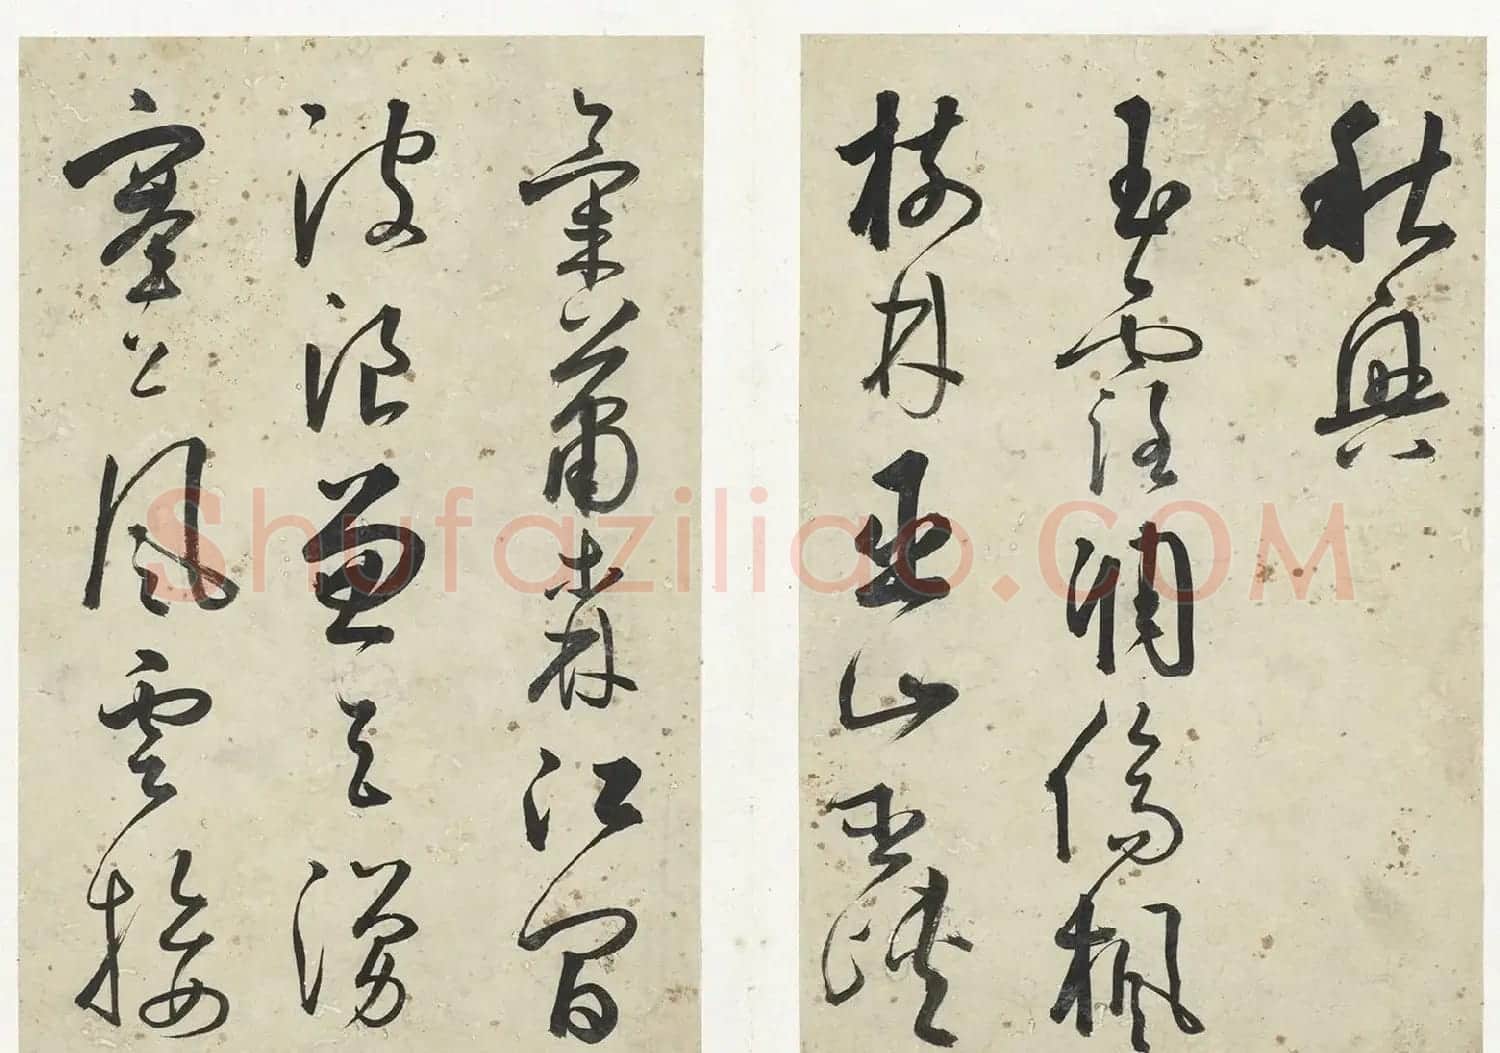 秋興
玉露凋傷楓
樹林巫山巫峽
氣蕭森江間
波浪兼天湧
塞上風雲接
Shufaziliao.COM